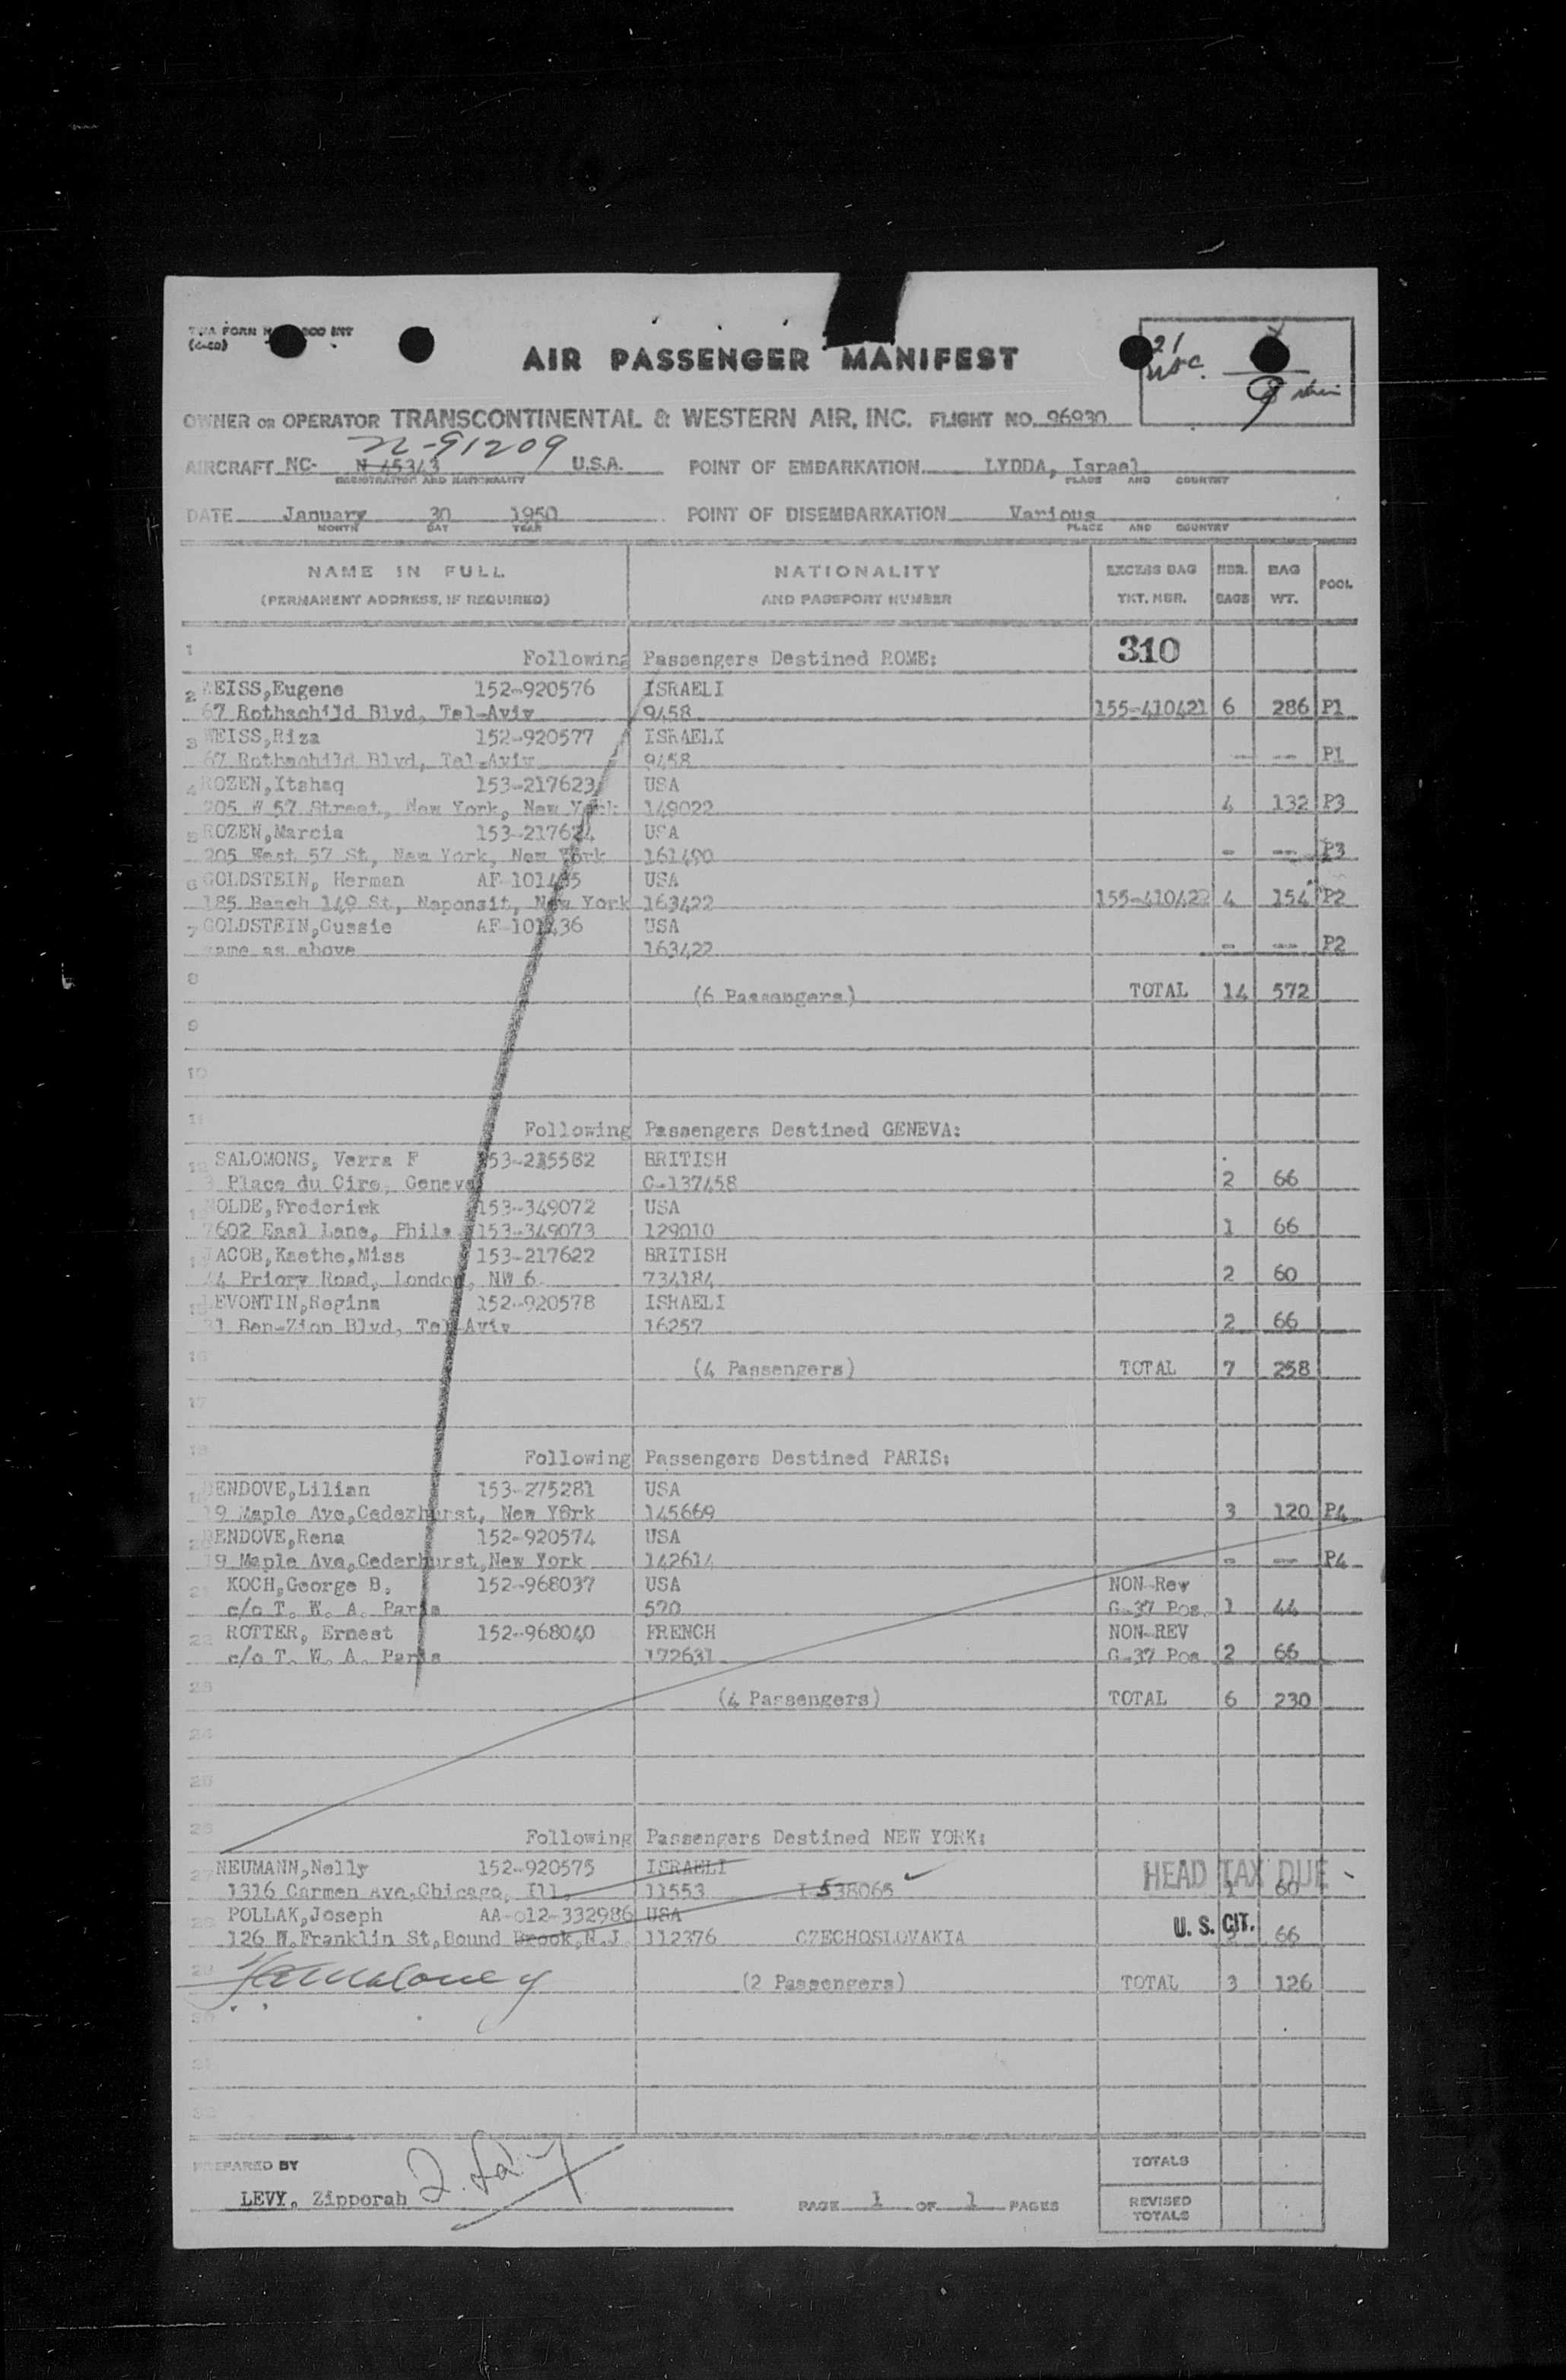 AIR PASSENGER MANIFEST
21
OWNER OR OPERATOR TRANSCONTINENTAL & WESTERN AIR, INC. FLIGHT NO. 96930
N-91209
AIRCRAFT NC- N 45343 U.S.A. POINT OF EMBARKATION LYDDA, Israel
REGISTRATION AND NATIONALITY PLACE AND COUNTRY
DATE January 30 1950 POINT OF DISEMBARKATION Various
MONTH DAY YEAR PLACE AND COUNTRY
NAME IN FULL NATIONALITY EXCESS BAG NBR. BAG POOL
(PERMANENT ADDRESS, IF REQUIRED) AND PASSPORT NUMBER TKT. NBR. BAGS WT.
1 Following Passengers Destined ROME: 310
2 WEISS,Eugene 152-920576 ISRAELI
67 Rothschild Blvd, Tel-Aviv 9458 155-410421 6 286 P1
3 WEISS,Riza 152-920577 ISRAELI
67 Rothschild Blvd, Tel-Aviv 9458 -- -- P1
4 ROZEN,Itshaq 153-217623 USA
205 W 57 Street, New York, New York 149022 4 132 P3
5 ROZEN,Marcia 153-217624 USA
205 West 57 St, New York, New York 161490 - -- P3
6 GOLDSTEIN, Herman AF-101435 USA
185 Beach 149 St, Neponsit, New York 163422 155-410422 4 154 P2
7 GOLDSTEIN,Gussie AF-101436 USA
same as above 163422 - -- P2
8 (6 Passengers) TOTAL 14 572
9
10
11 Following Passengers Destined GENEVA:
12 SALOMONS, Verra F 153-235582 BRITISH
3 Place du Circ, Geneva C-137458 2 66
13 NOLDE,Frederick 153-349072 USA
7602 Easl Lane, Phila 153-349073 129010 1 66
14 JACOB,Kaethe,Miss 153-217622 BRITISH
44 Priory Road, London, NW 6 734184 2 60
15 LEVONTIN,Regina 152-920578 ISRAELI
31 Ben-Zion Blvd, Tel-Aviv 16257 2 66
16 (4 Passengers) TOTAL 7 258
17
18 Following Passengers Destined PARIS:
19 BENDOVE,Lilian 153-275281 USA
19 Maple Ave,Cederhurst, New York 145669 3 120 P4
20 BENDOVE,Rena 152-920574 USA
19 Maple Ave,Cederhurst,New York 142614 - -- P4
21 KOCH,George B. 152-968037 USA NON-Rev
c/o T. W. A. Paris 520 G-37 Pos. 1 44
22 ROTTER, Ernest 152-968040 FRENCH NON-REV
c/o T. W. A. Paris 172631 G-37 Pos 2 66
23 (4 Passengers) TOTAL 6 230
24
25
26 Following Passengers Destined NEW YORK:
27 NEUMANN,Nelly 152-920575 ISRAELI HEAD TAX DUE
1316 Carmen Ave,Chicago, Ill. 11553 I-538065 1 60
28 POLLAK,Joseph AA-012-332986 USA U. S. CIT.
126 W.Franklin St,Bound Brook,N.J. 112376 CZECHOSLOVAKIA 66
29 (2 Passengers) TOTAL 3 126
30
31
32
PREPARED BY TOTALS
LEVY, Zipporah Z. Levy PAGE 1 OF 1 PAGES REVISED
TOTALS